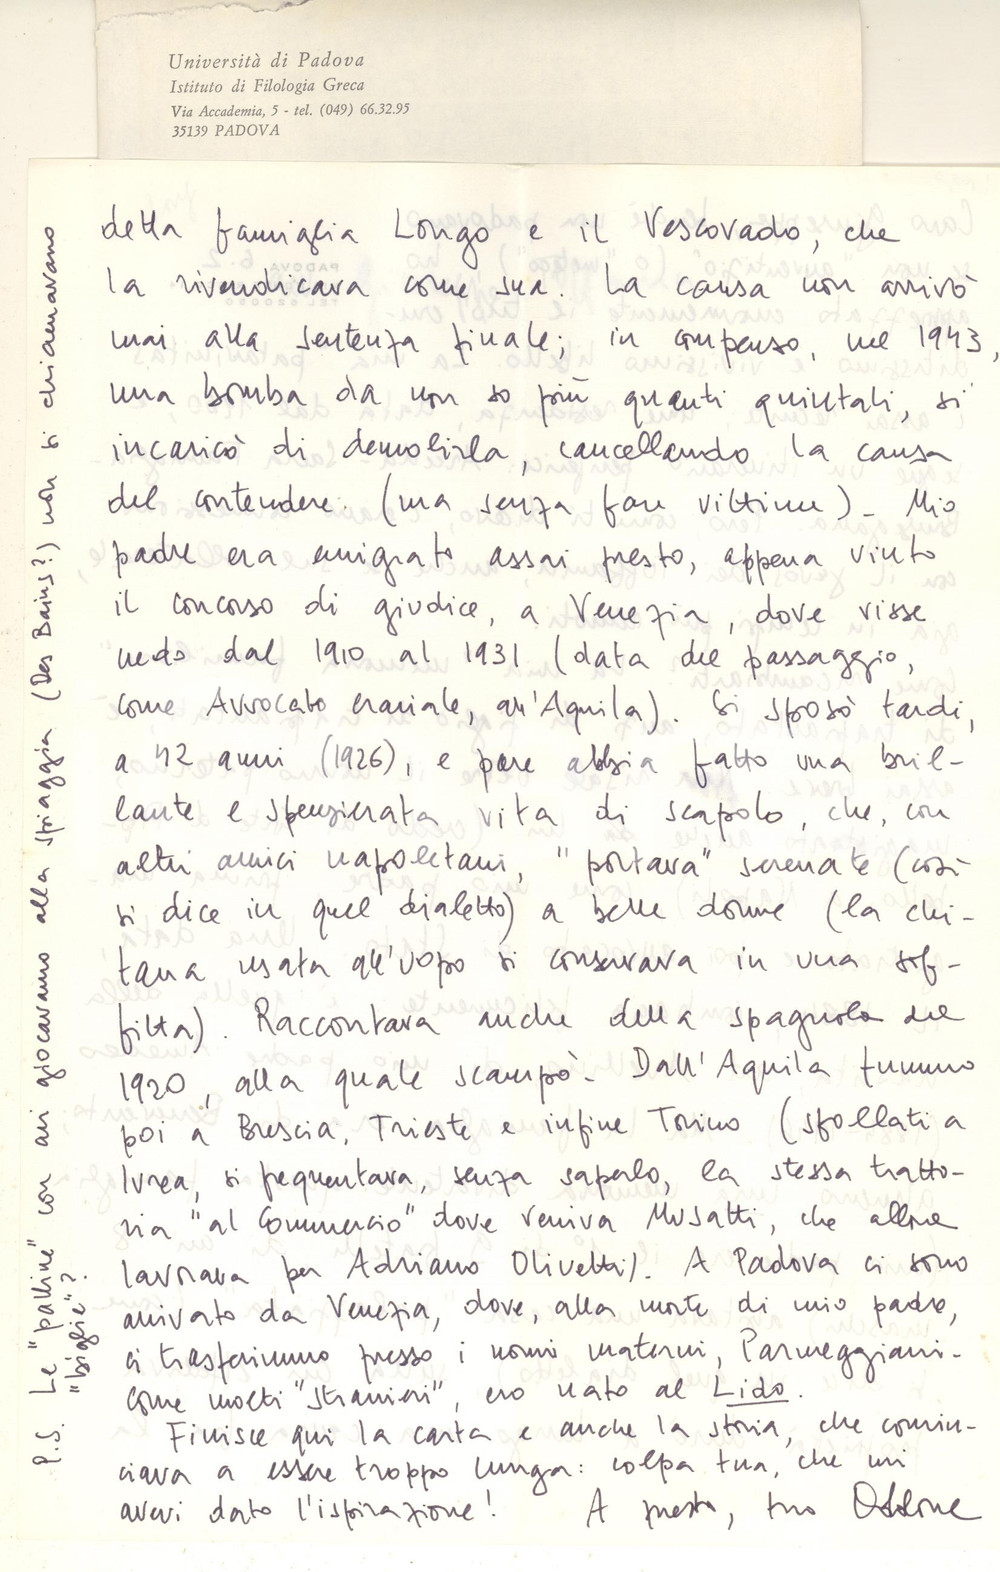 Università di Padova
Istituto di Filologia Greca
Via Accademia, 5 - tel. (049) 66.32.95
35139 PADOVA
della famiglia Longo e il Vescovado, che
la rivendicava come sua. La causa non arrivò
mai alla sentenza finale; in compenso, nel 1943,
una bomba da non so più quanti quintali, si
incaricò di demolirla, cancellando la causa
del contendere. (ma senza fare vittime) - Mio
padre era emigrato assai presto, appena vinto
il concorso di giudice, a Venezia, dove visse
dal 1910 al 1931 (data del passaggio,
come Avvocato erariale, all'Aquila). Si sposò tardi,
a 42 anni (1926), e pare abbia fatto una bril-
lante e spensierata vita di scapolo, che, con
altri amici napoletani, "portava" serenate (così
si dice in quel dialetto) a belle donne (la chi-
tarra usata all'uopo si conservava in una sof-
fitta). Raccontava anche della spagnola del
1920, alla quale scampò - Dall'Aquila fummo
poi a Brescia, Trieste e infine Torino (sfollati a
Ivrea, si frequentava, senza saperlo, la stessa tratto-
ria "al Commercio" dove veniva Musatti, che allora
lavorava per Adriano Olivetti). A Padova ci sono
arrivato da Venezia, dove, alla morte di mio padre,
ci trasferimmo presso i nonni materni, Parmeggiani -
Come molti "stranieri", ero nato al Lido.
Finisce qui la carta e anche la storia, che comin-
ciava a essere troppo lunga: colpa tua, che mi
avevi dato l'ispirazione! A presto, tuo Oddone
P.S. Le "palline" con cui giocavamo alla spiaggia (Des Bains?) non si chiamavano
"biglie"?